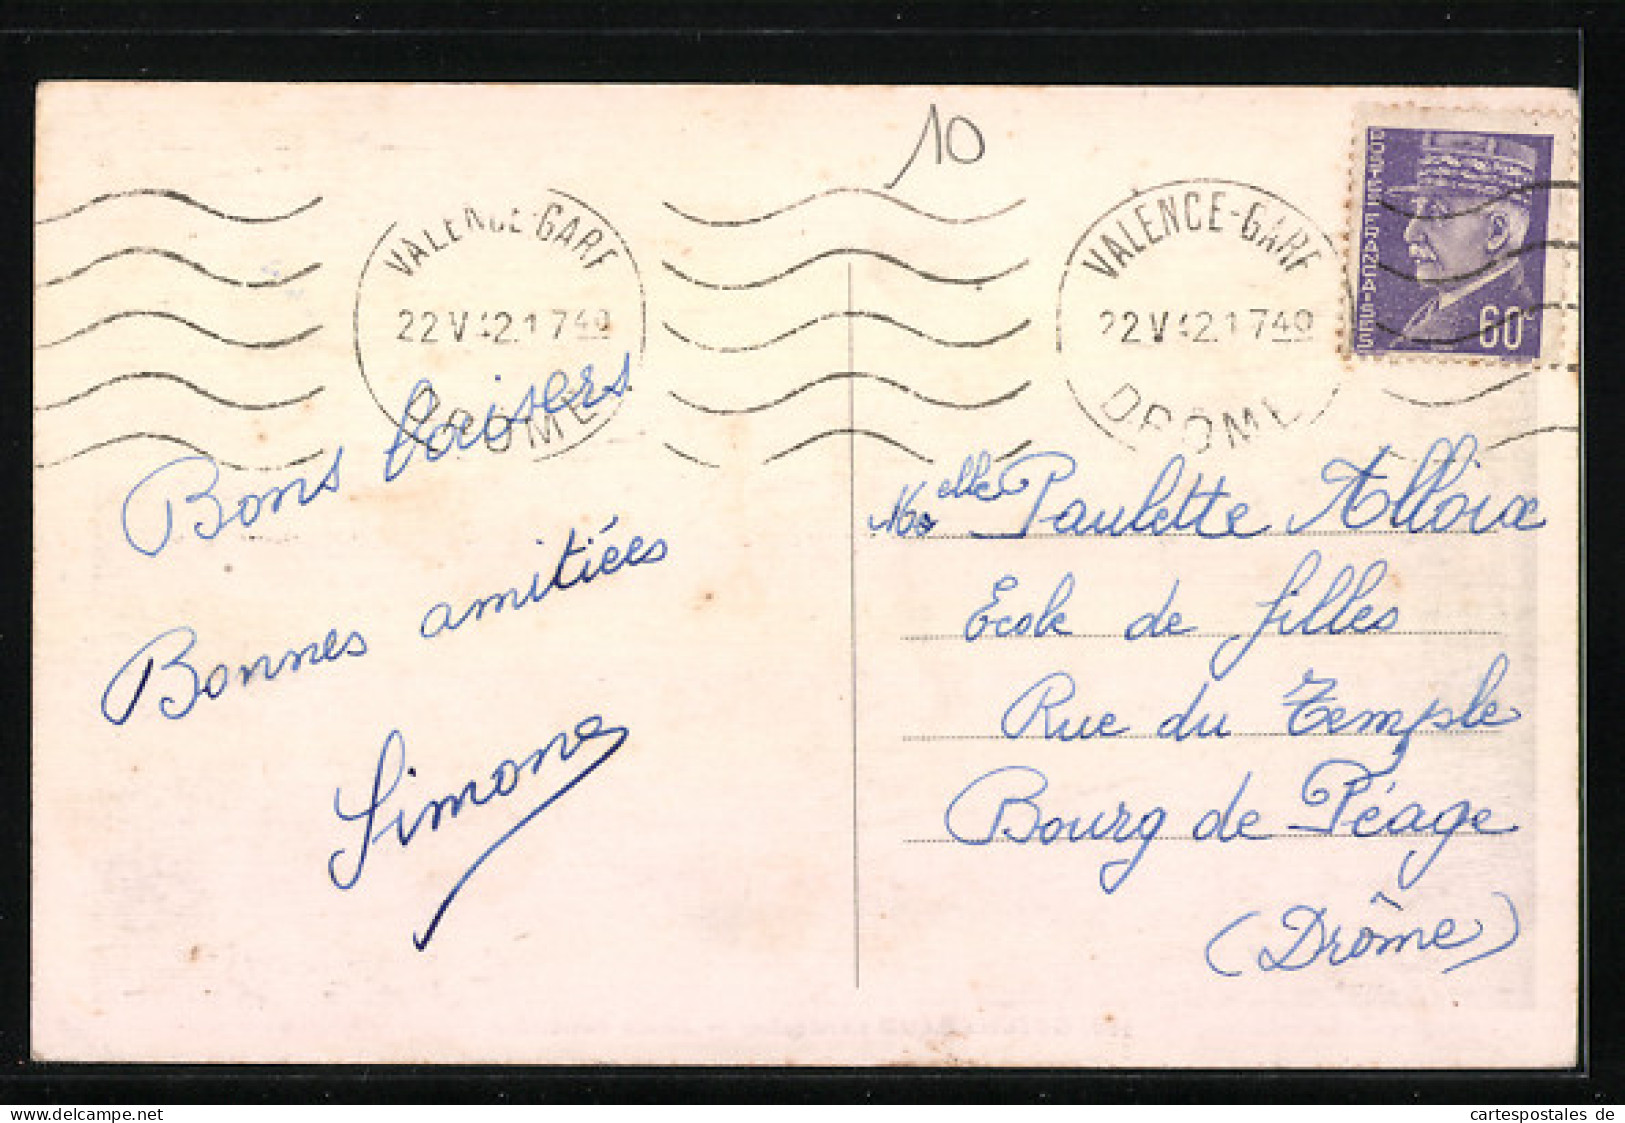 10
VALENCE-GARE
22 V 42.1740
DROME
VALENCE-GARE
22 V 42.1740
DROME
POSTES FRANÇAISES
60c
Bons baisers
Bonnes amitiées
Simone
Melle Paulette Alloix
Ecole de filles
Rue du Temple
Bourg de Péage
(Drôme)
cartespostales de